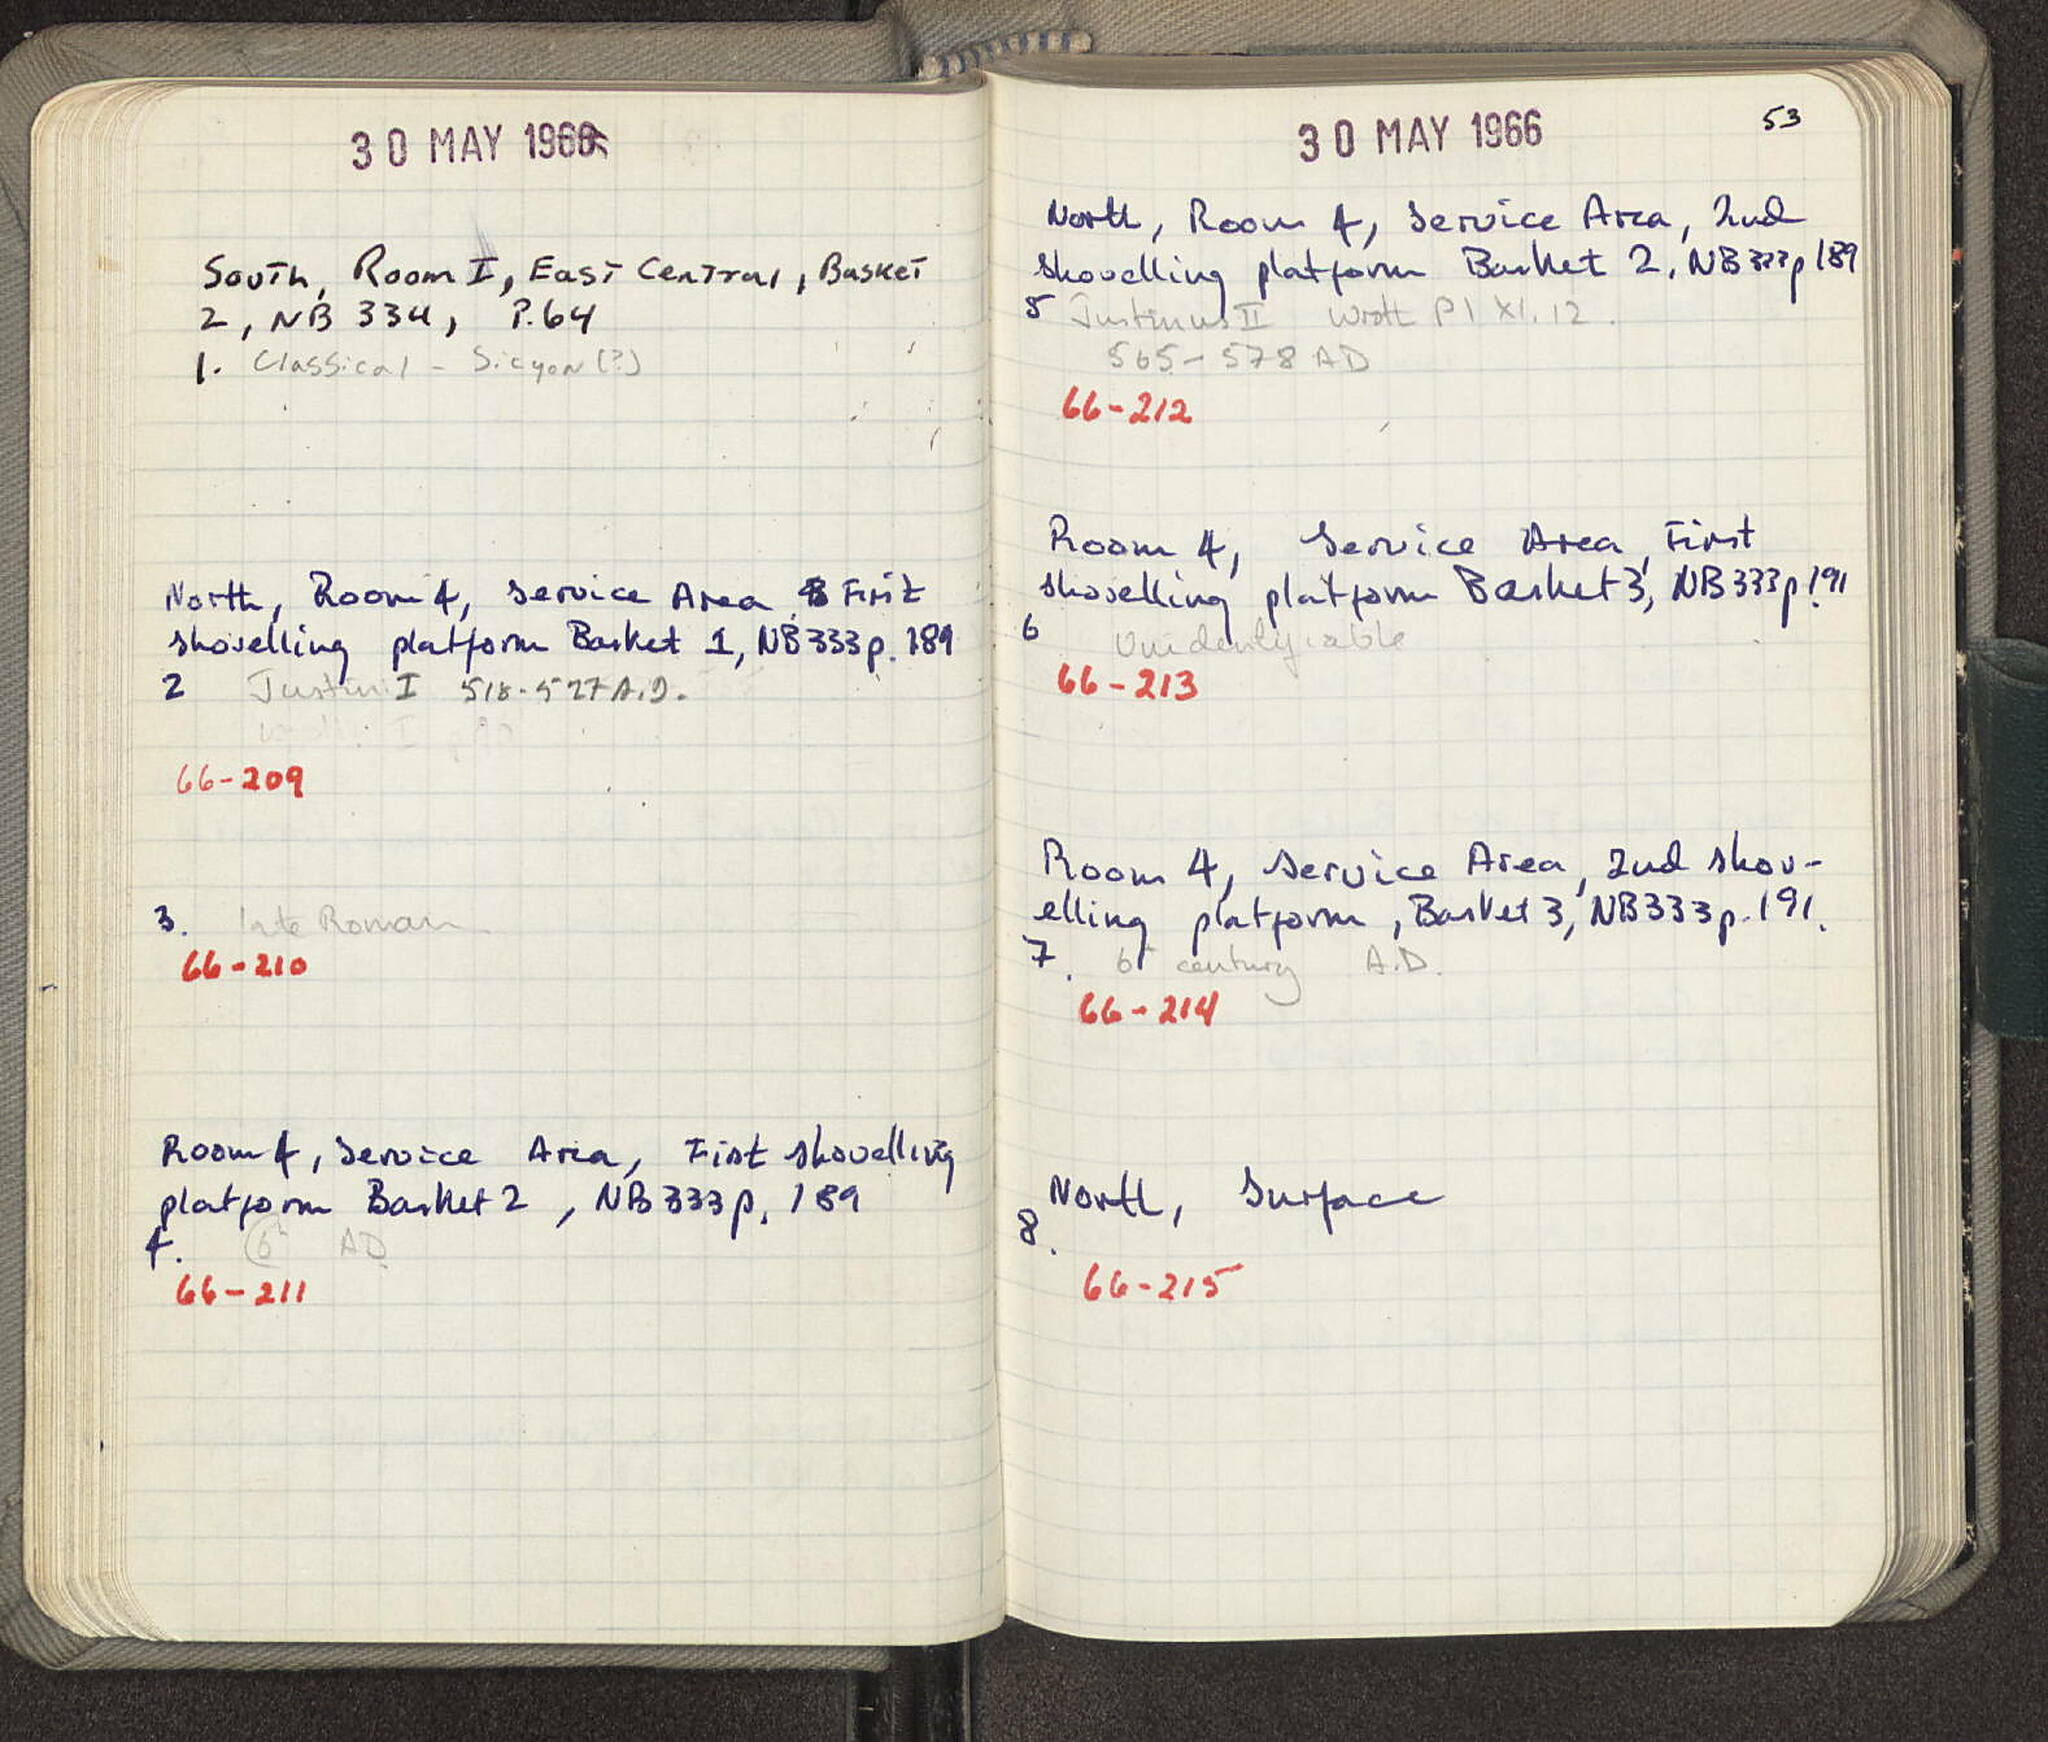 30 MAY 1966
South, Room I, East Central, Basket
2, NB 334, P.64
1. Classical - Sicyon (?)
North, Room 4, Service Area, First
shovelling platform Basket 1, NB 333 p. 189
2 Justin I 518-527 A.D.
66-209
3. late Roman
66-210
Room 4, Service Area, First shovelling
platform Basket 2, NB 333 p. 189
4. 6th AD
66-211
30 MAY 1966
53
North, Room 4, Service Area, 2nd
shovelling platform Basket 2, NB 333 p 189
5 Justinus II Wroth Pl XI. 12.
565-578 AD
66-212
Room 4, Service Area, First
shovelling platform Basket 3, NB 333 p. 191
6 Unidentifiable
66-213
Room 4, Service Area, 2nd shov-
elling platform, Basket 3, NB 333 p. 191.
7. 6th century A.D.
66-214
North, Surface
8.
66-215